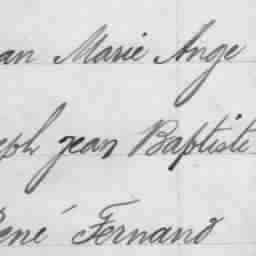 an Marie Ange
eph jean Baptiste
René Fernand